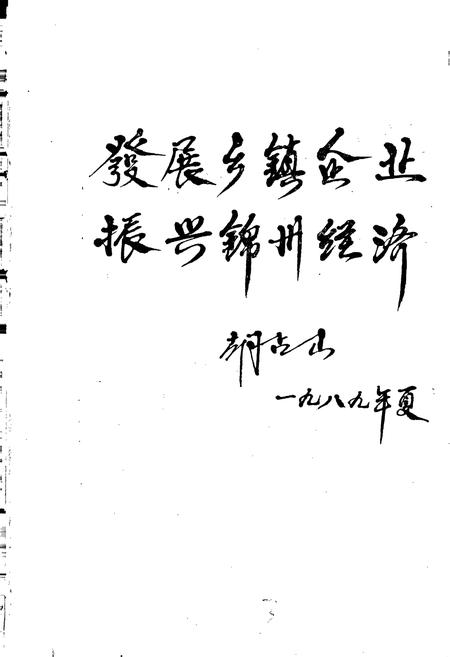 發展乡镇企业
振兴錦州经济
胡占山
一九八九年夏